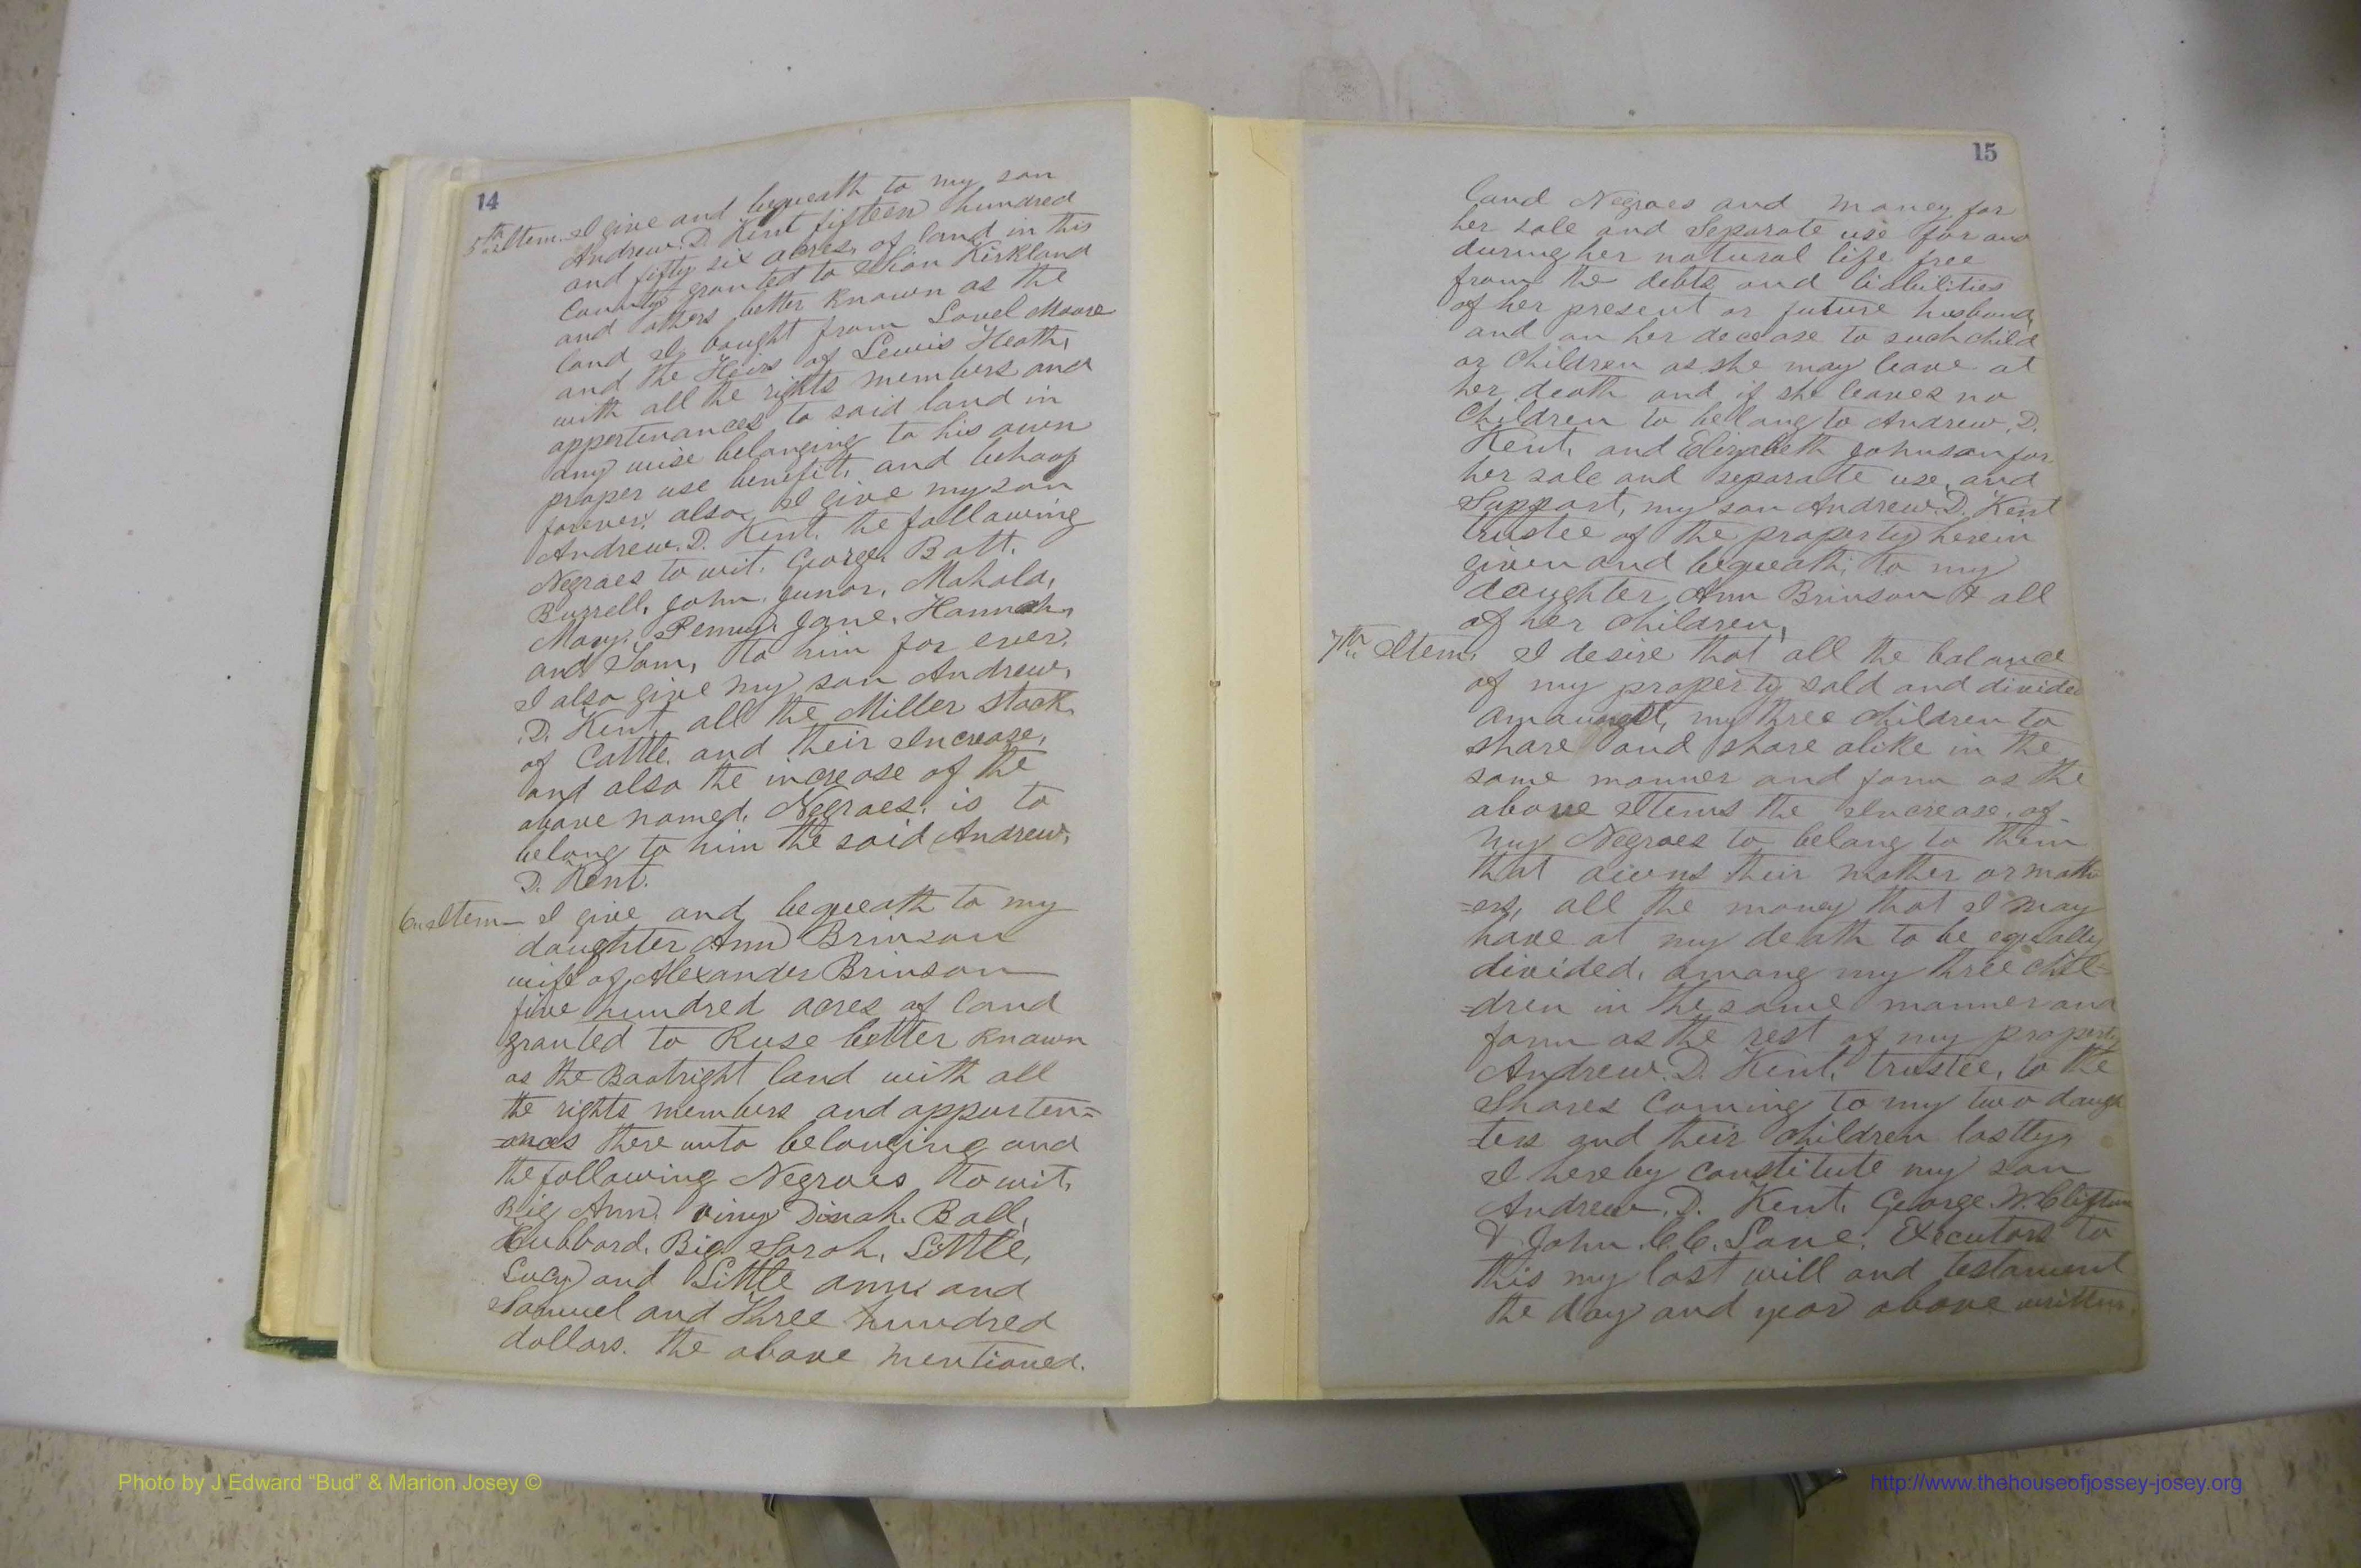 14
5th Item. I give and bequeath to my son
Andrew. D. Kent fifteen hundred
and fifty six acres, of land in this
County granted to Sion Kirkland
and others better known as the
land I bought from Lovel Moore
and the Heirs of Lewis Heath,
with all the rights members and
appertenances to said land in
any wise belonging to his own
proper use benefit, and behoof
forever, also, I give my son
Andrew. D. Kent. the following
Negroes to wit. George. Batt.
Burrell, John, Junor, Mahala,
Mary, Penny, Jane, Hannah,
and Tom, to him for ever,
I also give my son Andrew,
D. Kent, all the Miller stock
of Cattle, and their Increase,
and also the increase of the
above named, Negroes, is to
belong to him the said Andrew,
D. Kent.
6th Item I give and bequeath to my
daughter Ann Brinson
wife of Alexander Brinson
five hundred acres of land
granted to Ruse better known
as the Boatright land with all
the rights members and appurten=
=ances there unto belonging and
the following Negroes, to wit,
Big Ann. Viny Dinah. Ball,
Hubbard. Big Sarah, Little,
Lucy and Little ann and
Samuel and Three hundred
dollars. the above mentioned.
15
land Negroes and money for
her sole and Separate use for and
during her natural life free
from the debts and liabilities
of her present or future husband,
and on her decease to such child
or Children as she may leave at
her death and if she leaves no
Children to bellong to Andrew. D.
Kent, and Elizabeth Johnson for
her sole and separate use, and
Support, my son Andrew. D. Kent
trustee of the property herein
given and bequeath, to my
daughter Ann Brinson & all
of her Children,
7th Item. I desire that all the balance
of my property sold and divided
amoungst, my three children to
share and share alike in the
same manner and form as the
above Items the Increase, of
my Negroes to belong to them
that owns their mother or moth
=ers, all the money that I may
have at my death to be equally
divided, among my three chil=
=dren in the same manner and
form as the rest of my property
Andrew. D. Kent. trustee, to the
Shares Coming to my two daugh
=ters and their Children lastly,
I hereby Constitute my son
Andrew. D. Kent. George. W. Clifton
& John. C. C. Lane. Executors to
this my last will and testament
the day and year above written.
Photo by J Edward “Bud” & Marion Josey ©
http://www.thehouseofjossey-josey.org